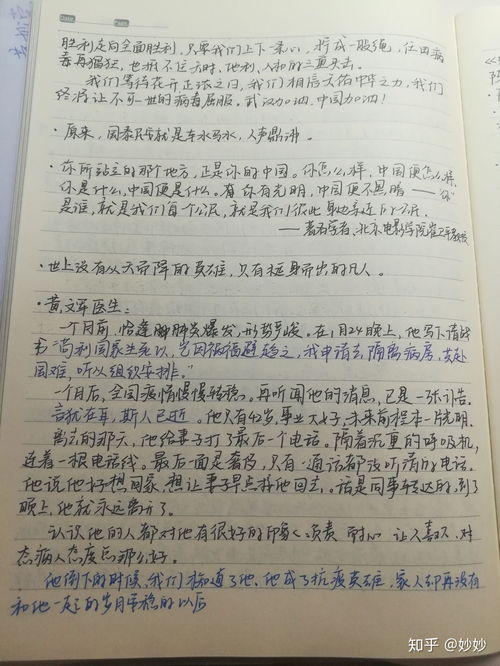 Date
Page
胜利走向全面胜利,只要我们上下一条心,拧成一股绳,任由病
毒再猖狂,也抵不过天时、地利、人和的三重夹击。
我们等待花开正浓之日,我们相信天佑中华之力,我们
终将让不可一世的病毒屈服。武汉加油,中国加油!
·原来,国泰民安就是车水马水,人声鼎沸。
·你所站立的那个地方,正是你的中国。你怎么样,中国便怎么样,
你是什么,中国便是什么。有你有光明,中国便不黑暗——"你"
是谁,就是我们每个公民,就是我们彼此身边亲近的
——著名学者、北京电影学院崔卫平教授
·世上没有从天而降的英雄,只有挺身而出的凡人。
·黄文军医生:
一个月前,恰逢肺炎爆发,形势严峻。在1月24晚上,他写下请战
书"苟利国家生死以,岂因祸福避趋之,我申请去隔离病房,共赴
国难,听从组织安排。"
一个月后,全国疫情慢慢转稳。再听闻他的消息,已是一张讣告。
言犹在耳,斯人已逝。他只有42岁,事业大好,未来前程本一片光明。
离去的那天,他给妻子打了最后一个电话。隔着沉重的呼吸机,
连着一根电话线。最后一面是奢侈,只有一通话都没听清的电话。
他说他好想回家,想让妻子早点接他回去。话是同事转达的,到了
晚上,他就永远离开了。
认识他的人都对他有很好的印象:负责 耐心 让人喜欢,对
态病人态度总那么好。
他倒下的时候,我们才知道了他,他成了抗疫英雄,家人却再没有
和他一起的岁月平稳的以后
知乎 @妙妙